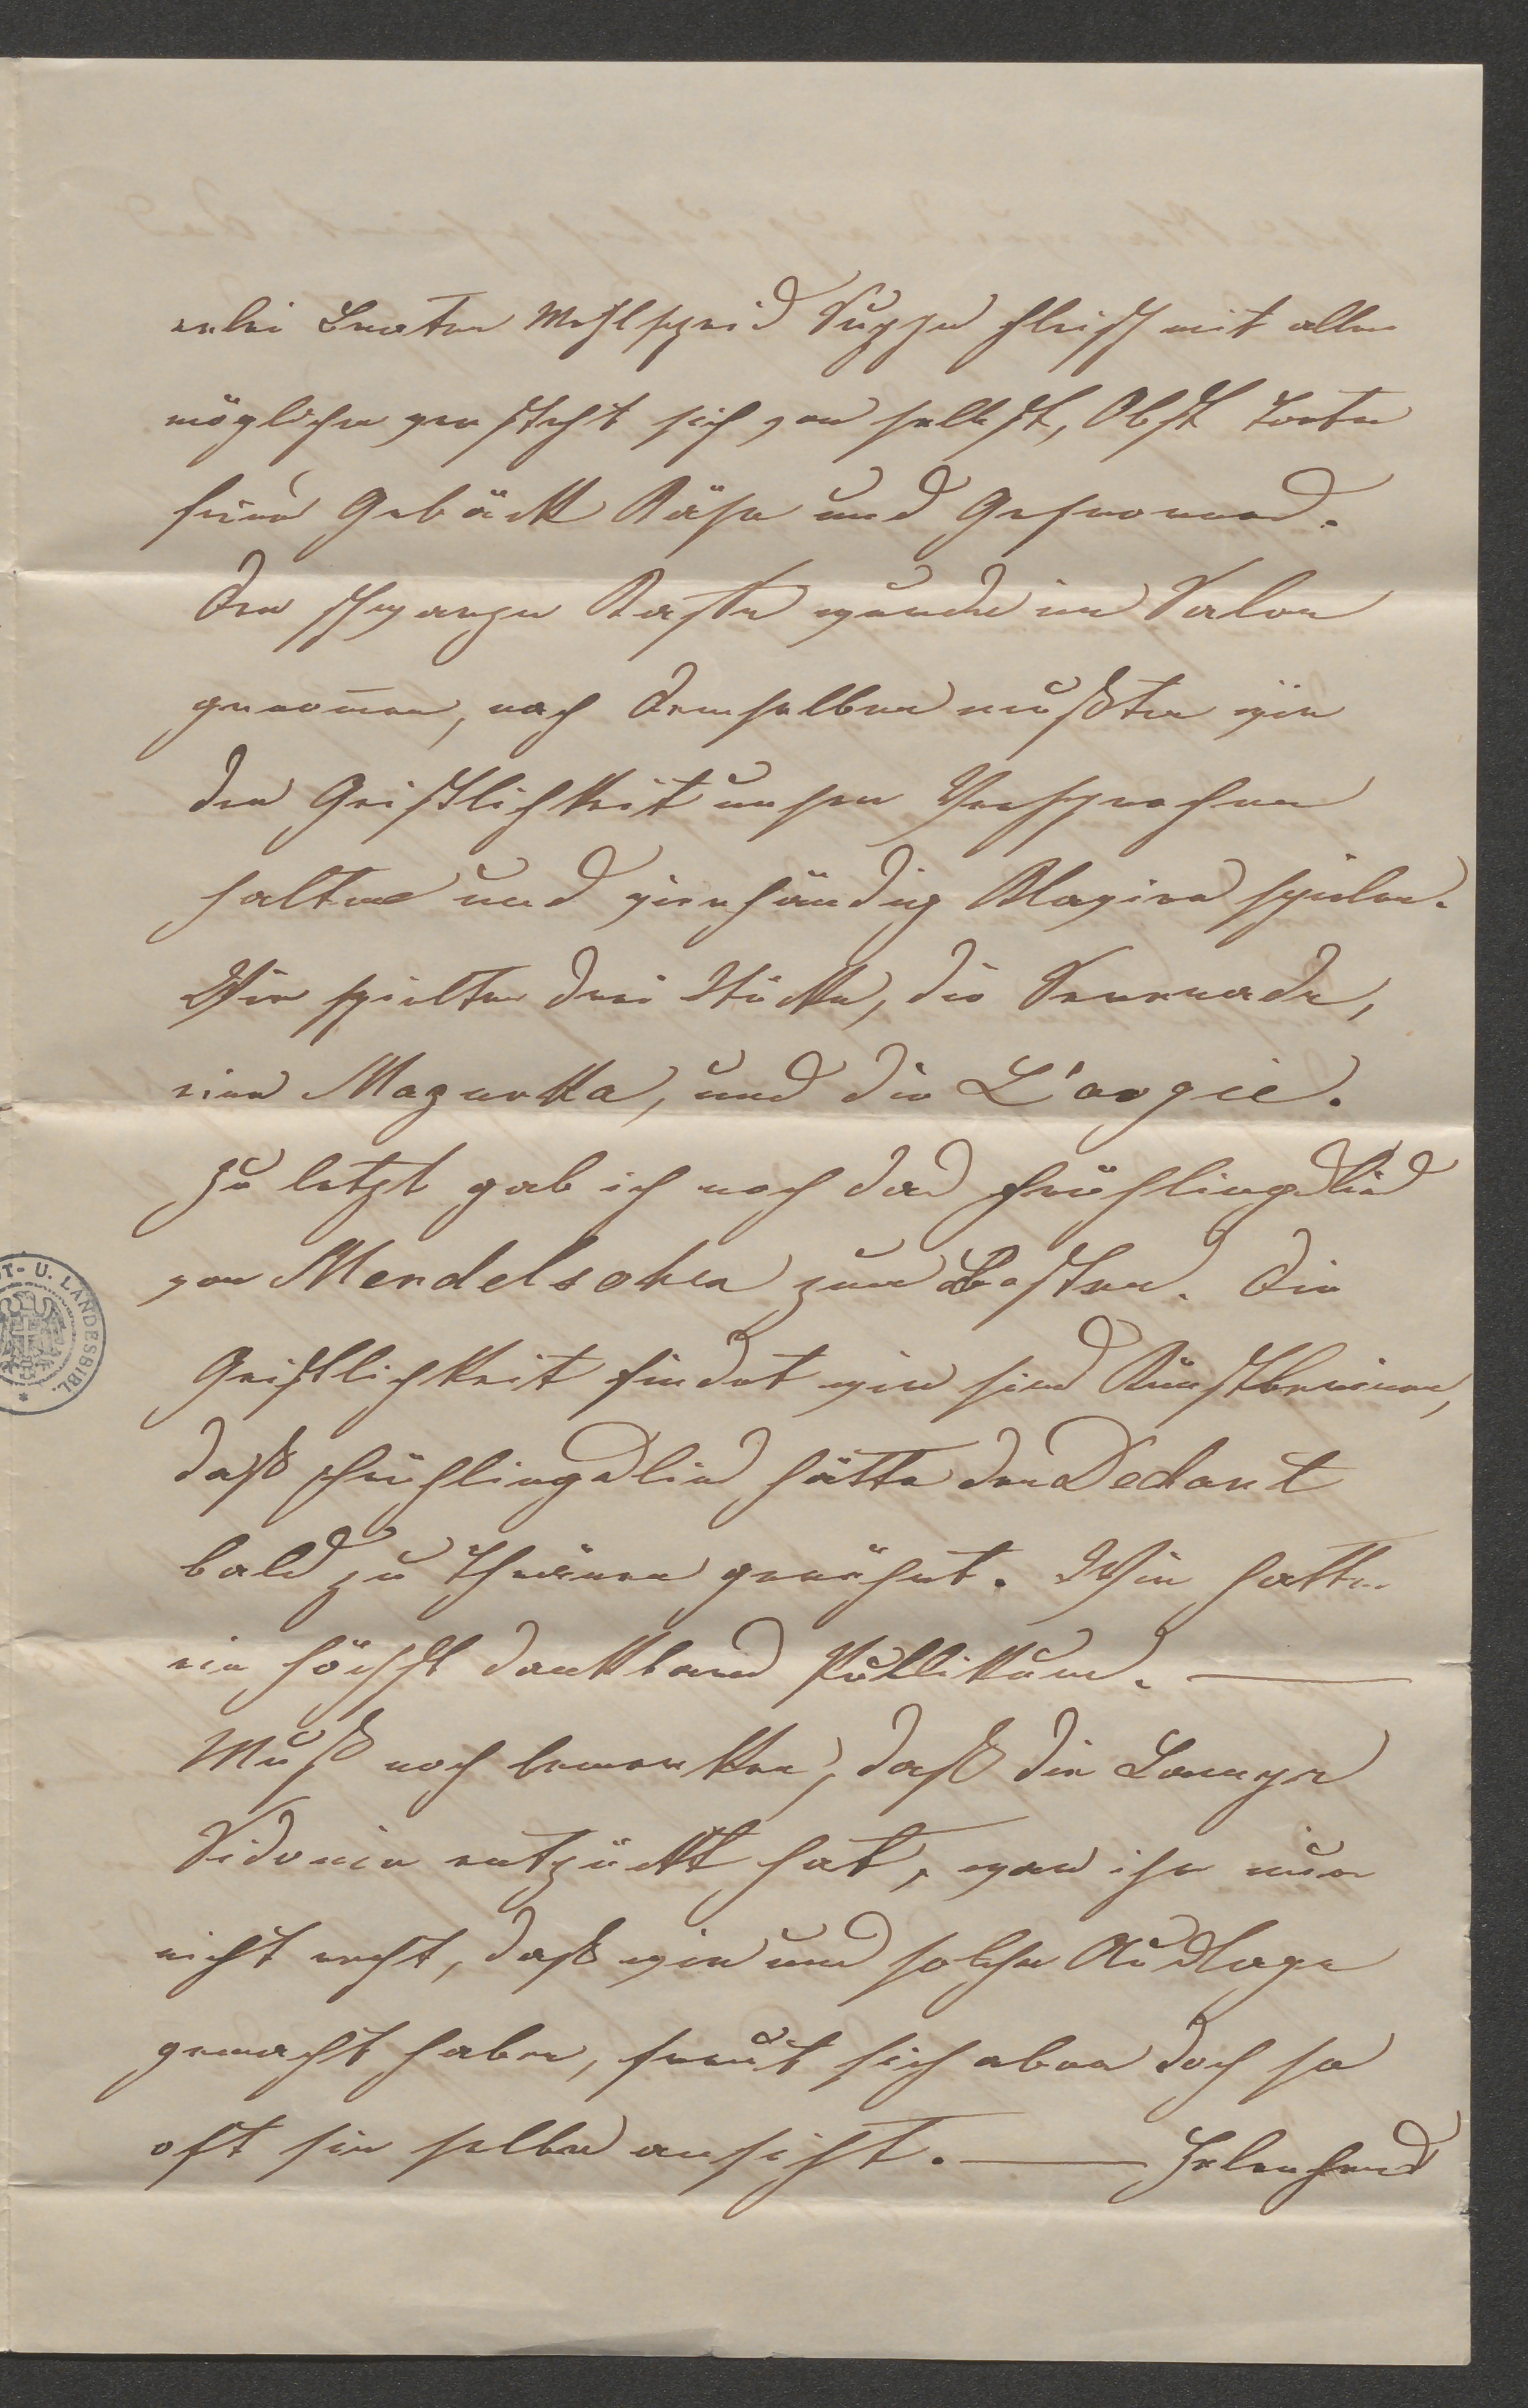 erlei Braten Mehlspeis Suppe fleisch mit allen
möglichen versteht sich von selbst, Obst Torte
feines Gebäck Käse und Gefrornes.
Der schwarze Kaffe wurde im Salon
genom̄en, nach demselben mußten wir
der Geistlichkeit unser Versprechen
halten und vierhändig Klavier spielen.
Wir spielten drei Stücke, die Serenade,
eine Mazurka, und die L'orgie.
Zu letzt gab ich noch das Frühlingslied
von Mendelsohn zum Besten. Die
Geistlichkeit findet wir sind Künstlerinen,
daß Frühlingslied hätte den Dechant
bald zu Thränen gerührt. Wir hatten
ein höchst dankbares Publikum. —
Muß noch bemerken, daß die Lampe
Sidonie entzückt hat, war ihr nur
nicht recht, daß wir uns solche Auslage
gemacht haben, freut sich aber doch so
oft sie selbe ansieht. —
T- U. LANDESBIBL. *